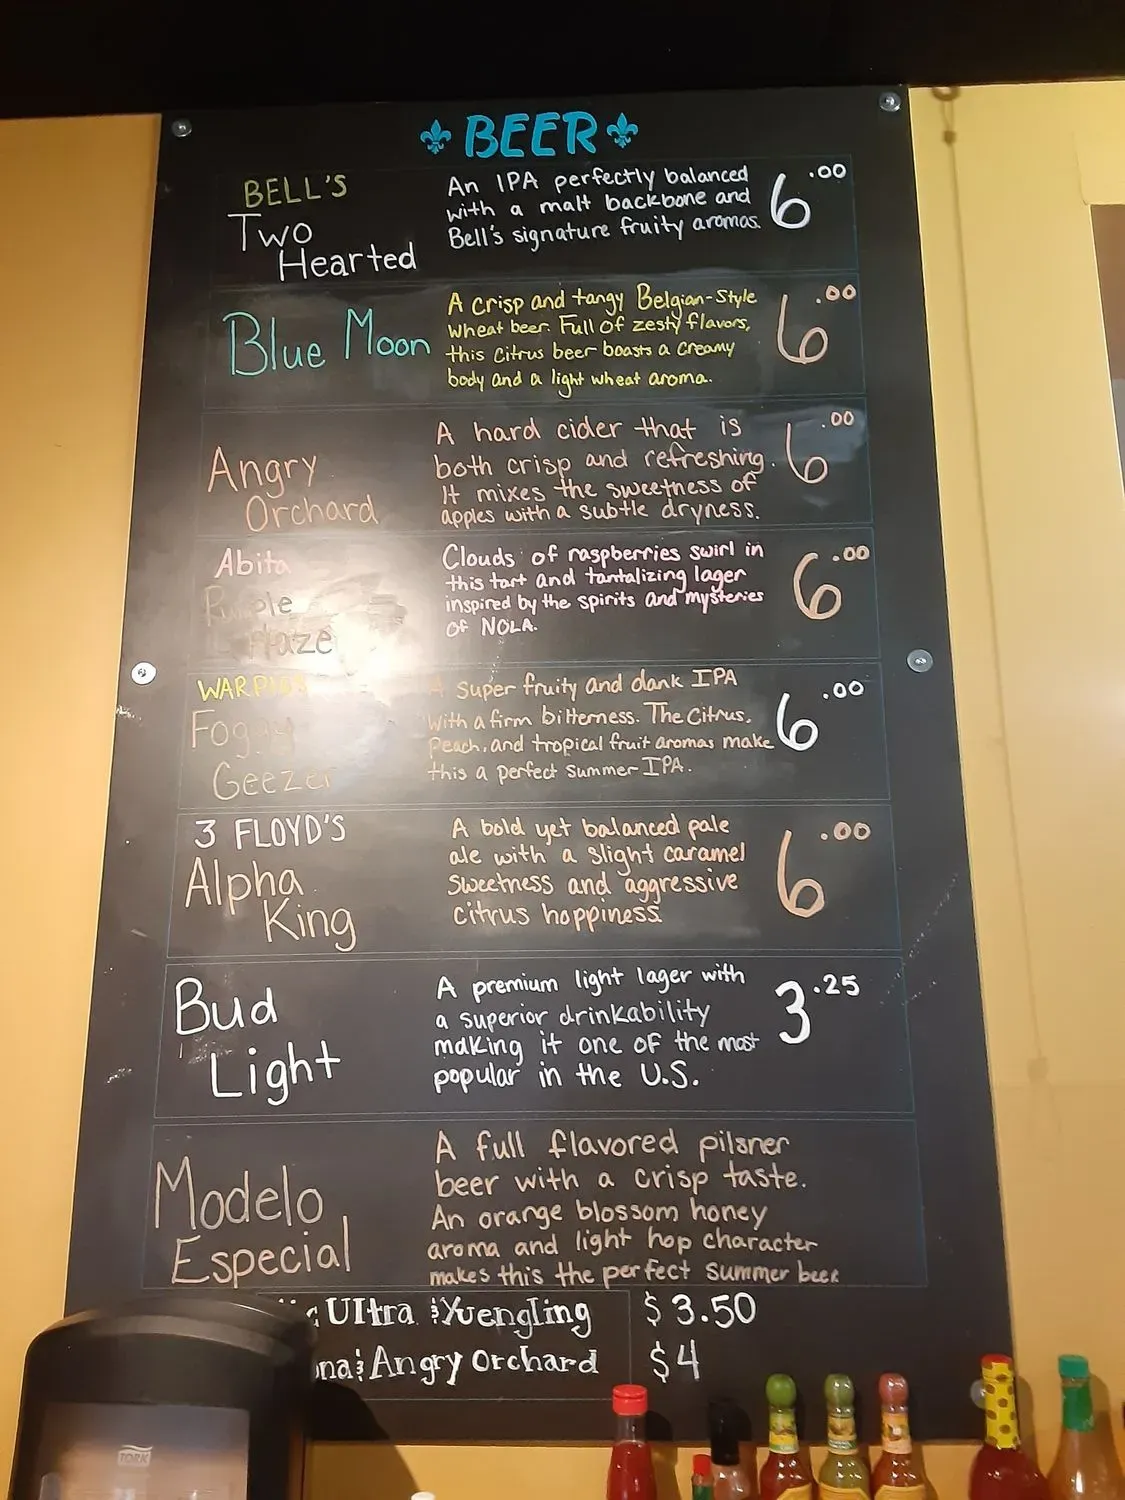 BEER
BELL'S
Two
Hearted
An IPA perfectly balanced
with a malt backbone and
Bell's signature fruity aromas.
6.00
Blue Moon
A crisp and tangy Belgian-Style
wheat beer. Full of zesty flavors,
this citrus beer boasts a creamy
body and a light wheat aroma.
6.00
Angry
Orchard
A hard cider that is
both crisp and refreshing.
It mixes the sweetness of
apples with a subtle dryness.
6.00
Abita
Purple
Haze
Clouds of raspberries swirl in
this tart and tantalizing lager
inspired by the spirits and mysteries
of NOLA.
6.00
WARPIGS
Foggy
Geezer
A super fruity and dank IPA
with a firm bitterness. The Citrus,
Peach, and tropical fruit aromas make
this a perfect summer IPA.
6.00
3 FLOYD'S
Alpha
King
A bold yet balanced pale
ale with a slight caramel
sweetness and aggressive
citrus hoppiness.
6.00
Bud
Light
A premium light lager with
a superior drinkability
making it one of the most
popular in the U.S.
3.25
Modelo
Especial
A full flavored pilsner
beer with a crisp taste.
An orange blossom honey
aroma and light hop character
makes this the perfect summer beer.
Ultra & Yuengling $3.50
& Angry Orchard $4
TORK